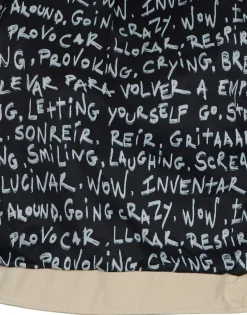 AROUND, GOING CRAZY, WOW, I
PROVOCAR, LLORAR, RESPIR
NG, PROVOKING, CRYING, BR
LEVAR PARA VOLVER A EMP
NG, LETTING YOURSELF GO, ST
SONREIR, REIR, GRITAAA
NG, SMILING, LAUGHING, SCRE
LUCINAR, WOW, INVENTAR
AROUND, GOING CRAZY, WOW, I
PROVOCAR, LLORAR, RESPIR
NG, PROVOKING, CRYING, BRE